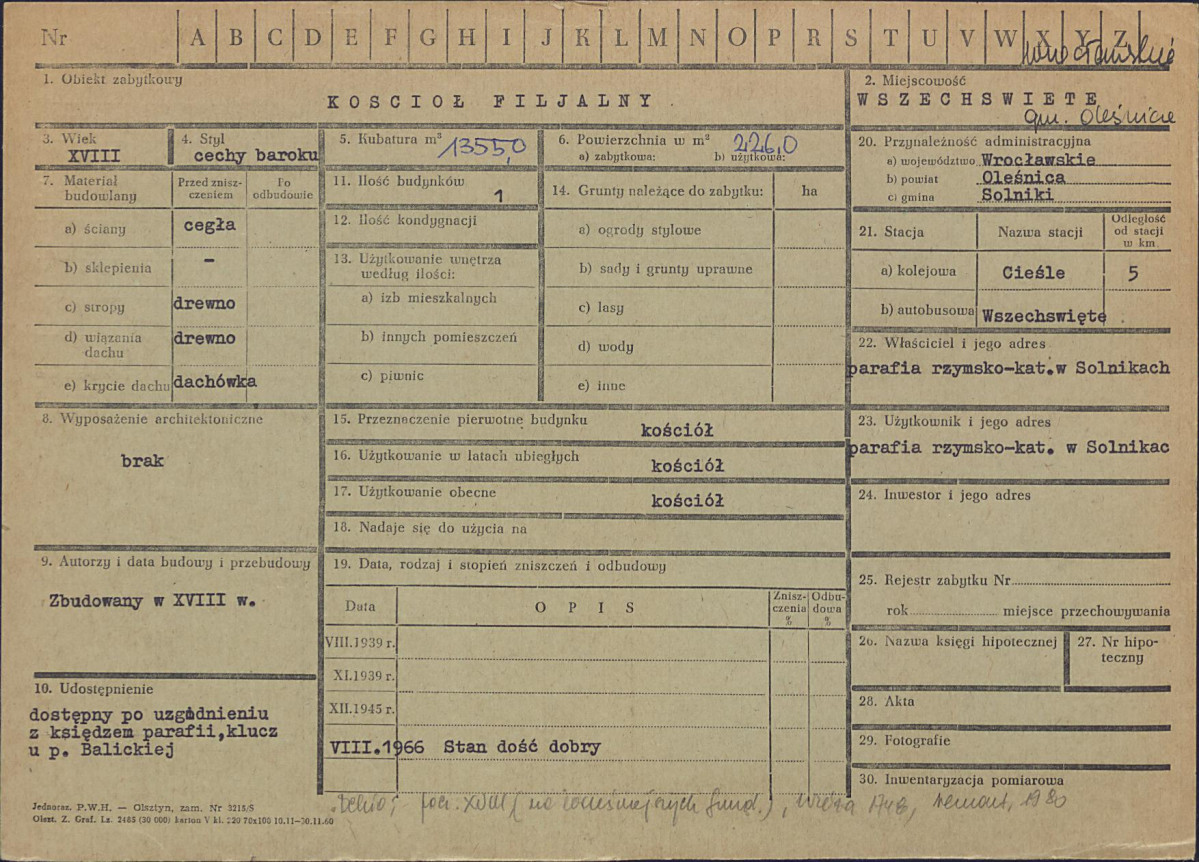 Nr A B C D E F G H I J K L M N O P R S T U V W X Y Z
1. Obiekt zabytkowy
KOSCIOŁ FILJALNY.
2. Miejscowość
WSZECHSWIETE
gm. Oleśnica
3. Wiek
XVIII
4. Styl
cechy baroku
5. Kubatura m³ 1355,0
6. Powierzchnia w m² 226,0
a) zabytkowa: b) użytkowa:
7. Materiał budowlany
Przed zniszczeniem
Po odbudowie
a) ściany cegła
b) sklepienia -
c) stropy drewno
d) wiązania dachu drewno
e) krycie dachu dachówka
8. Wyposażenie architektoniczne
brak
9. Autorzy i data budowy i przebudowy
Zbudowany w XVIII w.
10. Udostępnienie
dostępny po uzgodnieniu
z księdzem parafii,klucz
u p. Balickiej
11. Ilość budynków
1
12. Ilość kondygnacji
13. Użytkowanie wnętrza
według ilości:
a) izb mieszkalnych
b) innych pomieszczeń
c) piwnic
14. Grunty należące do zabytku: ha
a) ogrody stylowe
b) sady i grunty uprawne
c) lasy
d) wody
e) inne
15. Przeznaczenie pierwotne budynku
kościół
16. Użytkowanie w latach ubiegłych
kościół
17. Użytkowanie obecne
kościół
18. Nadaje się do użycia na
19. Data, rodzaj i stopień zniszczeń i odbudowy
Data OPIS Zniszczenia % Odbudowa %
VIII.1939 r.
XI.1939 r.
XII.1945 r.
VIII.1966 Stan dość dobry
20. Przynależność administracyjna
a) województwo Wrocławskie
b) powiat Oleśnica
c) gmina Solniki
21. Stacja Nazwa stacji Odległość od stacji w km
a) kolejowa Cieśle 5
b) autobusowa Wszechswięte
22. Właściciel i jego adres
parafia rzymsko-kat.w Solnikach
23. Użytkownik i jego adres
parafia rzymsko-kat. w Solnikac
24. Inwestor i jego adres
25. Rejestr zabytku Nr
rok miejsce przechowywania
26. Nazwa księgi hipotecznej
27. Nr hipoteczny
28. Akta
29. Fotografie
30. Inwentaryzacja pomiarowa
Jednoraz. P.W.H. — Olsztyn, zam. Nr 3215/S
Olszt. Z. Graf. Lz. 2485 (30 000) karton V kl. 220 70x100 10.11—30.11.60
pocz. XVIII (na fund.), wieża remont, 1980